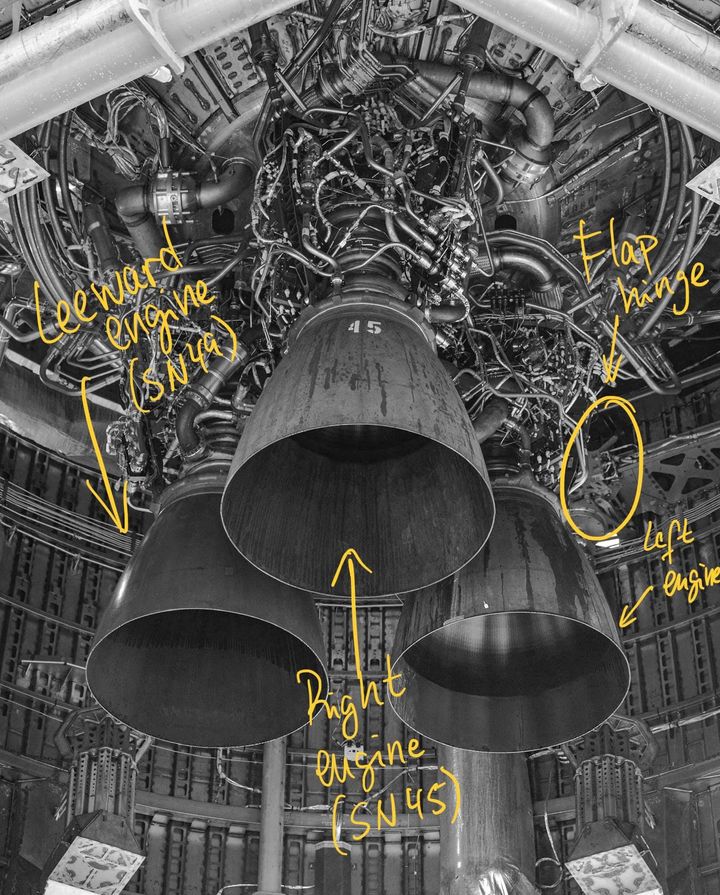 Leeward
engine
(SN49)
Flap
hinge
45
Left
engine
Right
engine
(SN45)